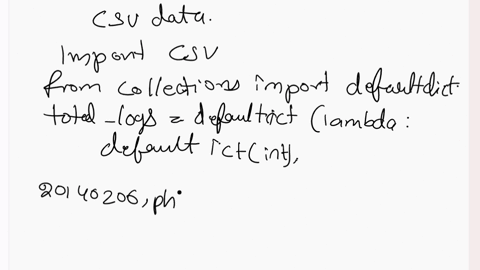 CSV data.
Import CSV
from collections import defaultdict
total_logs = defaultict (lambda :
default ict(int),
20140206, ph